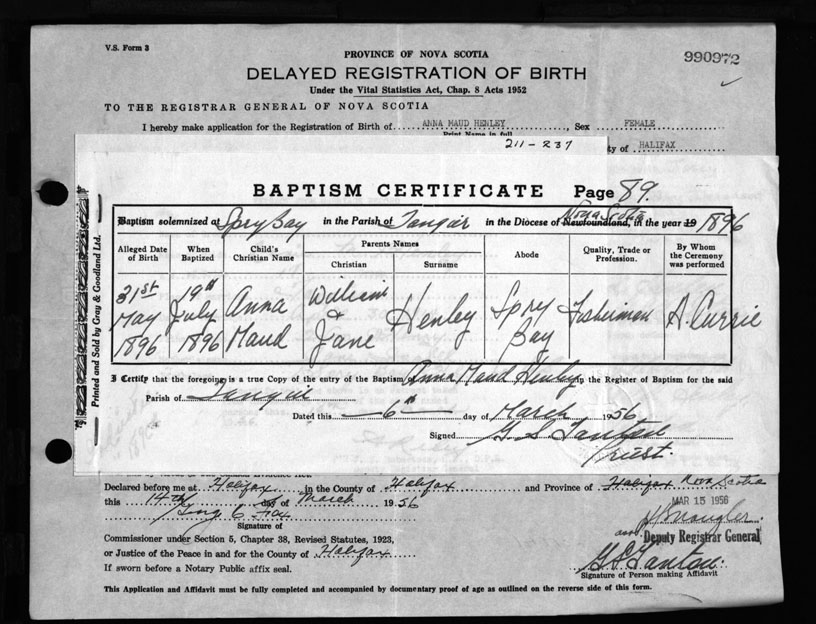 V.S. Form 3
PROVINCE OF NOVA SCOTIA
990972
DELAYED REGISTRATION OF BIRTH
Under the Vital Statistics Act, Chap. 8 Acts 1952
TO THE REGISTRAR GENERAL OF NOVA SCOTIA
I hereby make application for the Registration of Birth of ANNA MAUD HENLEY, Sex FEMALE
Print Name in full
211-237
ty of HALIFAX
BAPTISM CERTIFICATE Page 89.
Baptism solemnized at Spry Bay in the Parish of Tangier in the Diocese of Newfoundland, Nova Scotia in the year 19 1896
Alleged Date of Birth
When Baptized
Child's Christian Name
Parents Names
Christian
Surname
Abode
Quality, Trade or Profession.
By Whom the Ceremony was performed
31st May 1896
19th July 1896
Anna Maud
William & Jane
Henley
Spry Bay
Fisherman
A. Currie
I Certify that the foregoing is a true Copy of the entry of the Baptism Anna Maud Henley in the Register of Baptism for the said
Parish of Tangier
Dated this 6th day of March 1956
Signed G S Tanton
Priest.
Printed and Sold by Gray & Goodland Ltd.
Declared before me at Halifax in the County of Halifax and Province of Halifax Nova Scotia
this 14th day of March 1956
MAR 15 1956
Signature of
Commissioner under Section 5, Chapter 38, Revised Statutes, 1923,
Deputy Registrar General
or Justice of the Peace in and for the County of Halifax
G S Tanton
If sworn before a Notary Public affix seal.
Signature of Person making Affidavit
This Application and Affidavit must be fully completed and accompanied by documentary proof of age as outlined on the reverse side of this form.